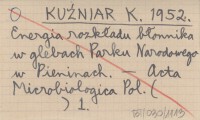 KUŹNIAR K. 1952.
Energia rozkładu błonnika
w glebach Parku Narodowego
w Pieninach. — Acta
Microbiologica Pol. (
) 1.